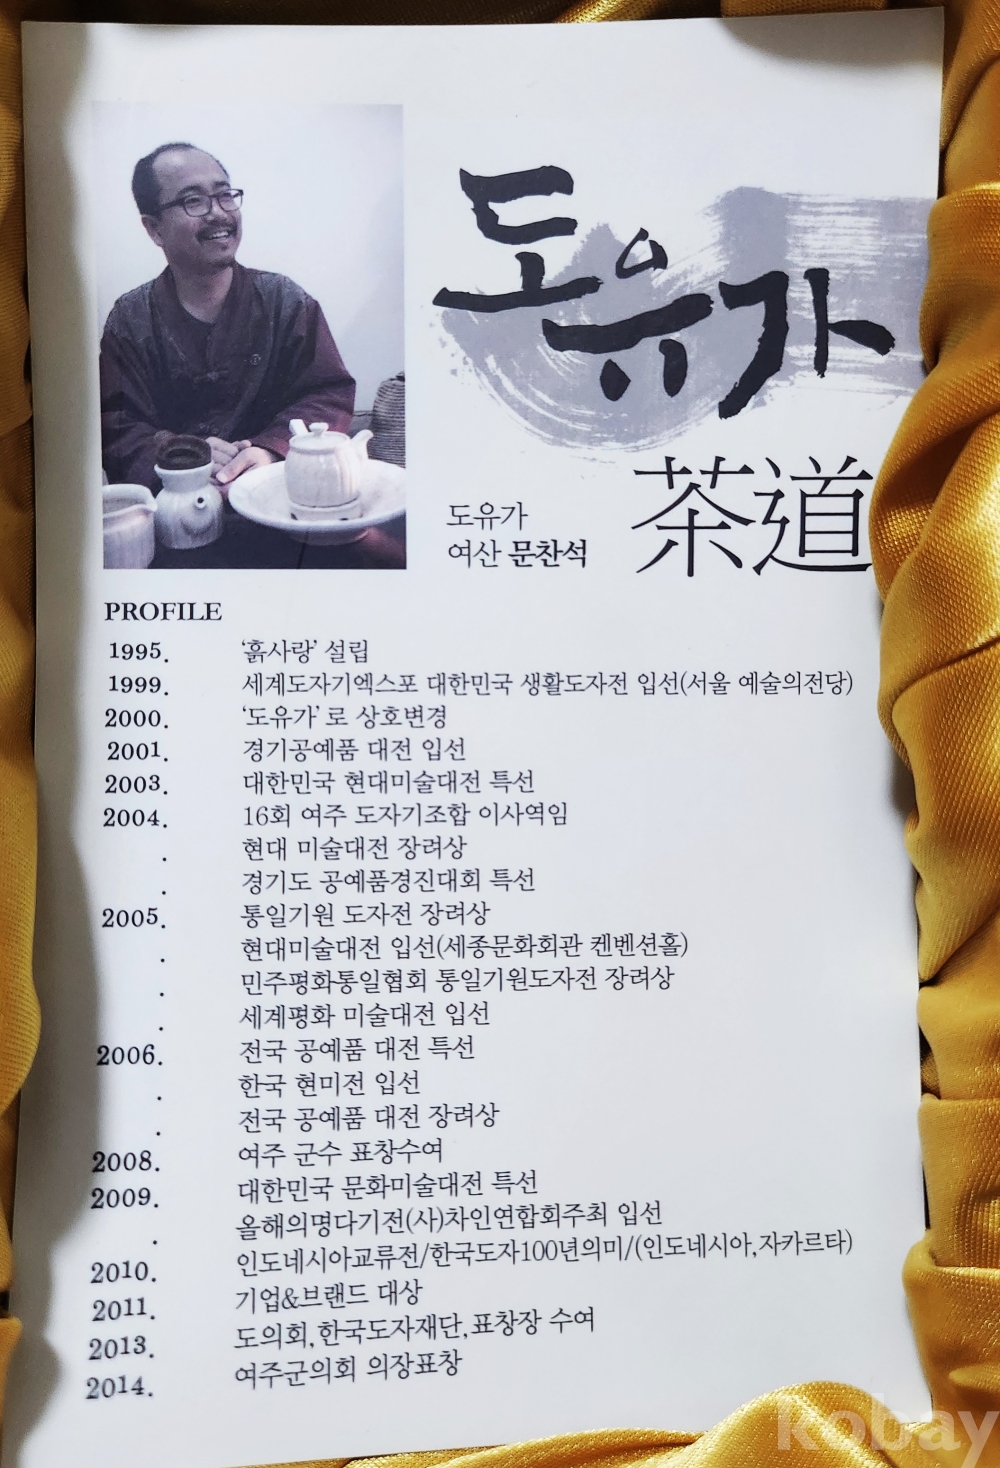 도유가
茶道
도유가
여산 문찬석
PROFILE
1995. ‘흙사랑’ 설립
1999. 세계도자기엑스포 대한민국 생활도자전 입선(서울 예술의전당)
2000. ‘도유가’로 상호변경
2001. 경기공예품 대전 입선
2003. 대한민국 현대미술대전 특선
2004. 16회 여주 도자기조합 이사역임
. 현대 미술대전 장려상
. 경기도 공예품경진대회 특선
2005. 통일기원 도자전 장려상
. 현대미술대전 입선(세종문화회관 켄벤션홀)
. 민주평화통일협회 통일기원도자전 장려상
. 세계평화 미술대전 입선
2006. 전국 공예품 대전 특선
. 한국 현미전 입선
. 전국 공예품 대전 장려상
2008. 여주 군수 표창수여
2009. 대한민국 문화미술대전 특선
. 올해의명다기전(사)차인연합회주최 입선
2010. 인도네시아교류전/한국도자100년의미/(인도네시아,자카르타)
2011. 기업&브랜드 대상
2013. 도의회,한국도자재단,표창장 수여
2014. 여주군의회 의장표창
kobay